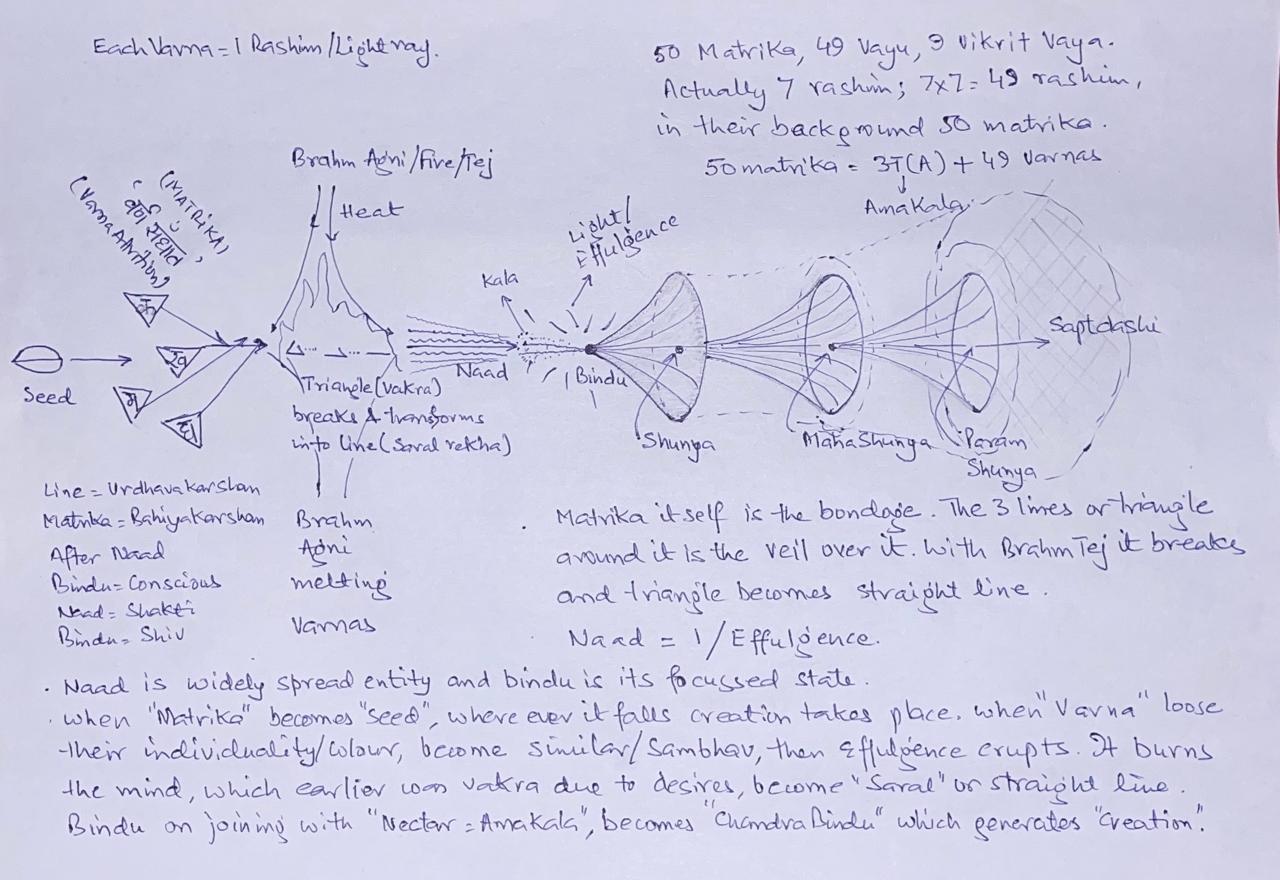 Each Varna = 1 Rashim/Light ray.
50 Matrika, 49 Vayu, 9 vikrit Vaya.
Actually 7 rashim; 7x7=49 rashim,
in their background 50 matrika.
50 matrika = अ(A) + 49 Varnas
Amakala
Brahm Agni/Fire/Tej
Heat
(MATRIKA)
वर्ण
Light/
Effulgence
Kala
Seed
Naad
Bindu
Saptdashi
Triangle (vakra)
breaks & transforms
into line (Saral rekha)
Shunya
MahaShunya
Param
Shunya
Line = Urdhavakarshan
Matrika = Bahiyakarshan
After Naad
Bindu = Conscious
Naad = Shakti
Bindu = Shiv
Brahm
Agni
melting
Varnas
Matrika itself is the bondage. The 3 lines or triangle
around it is the veil over it. With Brahm Tej it breaks
and triangle becomes straight line.
Naad = 1/Effulgence.
. Naad is widely spread entity and bindu is its focussed state.
. when "Matrika" becomes "seed", where ever it falls creation takes place. when "Varna" loose
their individuality/colour, become similar/Sambhav, then Effulgence erupts. It burns
the mind, which earlier was vakra due to desires, become "Saral" or straight line.
Bindu on joining with "Nectar = Amakala", becomes "Chandra Bindu" which generates "Creation".